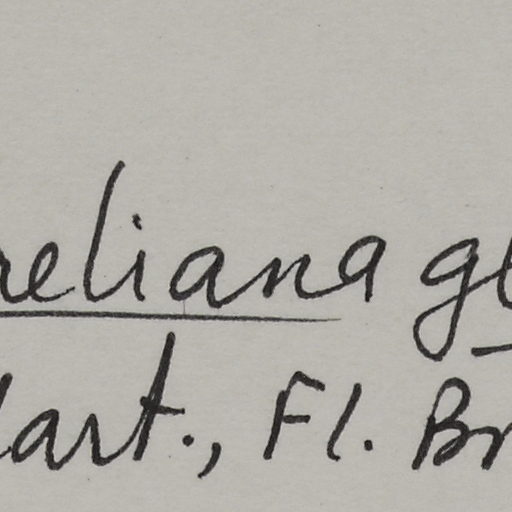 reliana gl
art., Fl. Br